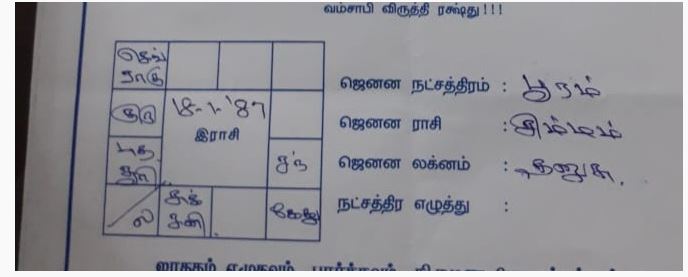 வம்சாபி விருத்தி ரக்ஷது!!!
செவ்
ராகு
குரு
18-1-'87
இராசி
புத
சூரி
சந்
ல
சுக்
சனி
கேது
ஜெனன நட்சத்திரம் : பூரம்
ஜெனன ராசி : சிம்மம்
ஜெனன லக்னம் : தனுசு.
நட்சத்திர எழுத்து :